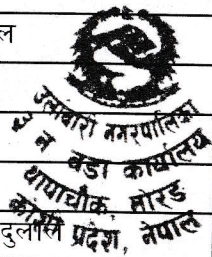 ल
उर्लाबारी नगरपालिका
३ न वडा कार्यालय
थापाचौक, मोरङ
कोशी प्रदेश, नेपाल